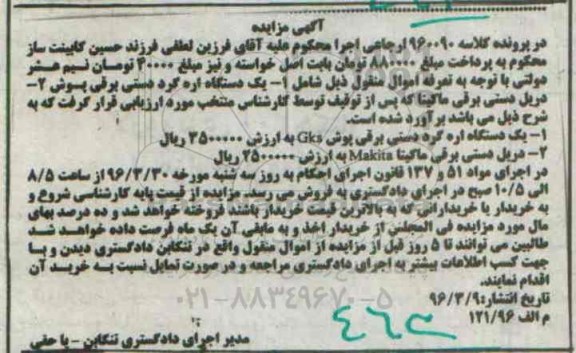 آگهی مزایده
در پرونده کلاسه ۹۶۰۰۹۰ ارجاعی اجرا محکوم علیه آقای فرزین لطفی فرزند حسین کابینت ساز
محکوم به پرداخت مبلغ ۸۸۰۰۰۰ تومان بابت اصل خواسته و نیز مبلغ ۴۰۰۰۰ تومان نیم عشر
دولتی با توجه به تعرفه اموال منقول ذیل شامل ۱- یک دستگاه اره گرد دستی برقی بوش ۲-
دریل دستی برقی ماکیتا که پس از توقیف توسط کارشناس منتخب مورد ارزیابی قرار گرفت که به
شرح ذیل می باشد برآورد شده است.
۱- یک دستگاه اره گرد دستی برقی بوش Gks به ارزش ۳۵۰۰۰۰۰ ریال
۲- دریل دستی برقی ماکیتا Makita به ارزش ۲۵۰۰۰۰۰ ریال
در اجرای مواد ۵۱ و ۱۳۷ قانون اجرای احکام به روز سه شنبه مورخه ۹۶/۳/۳۰ از ساعت ۸/۵
الی ۱۰/۵ صبح در اجرای دادگستری به فروش می رسد. مزایده از قیمت پایه کارشناسی شروع و
به خریدار یا خریدارانی که به بالاترین قیمت خریدار باشند فروخته خواهد شد و ده درصد بهای
مال مورد مزایده فی المجلس از خریدار اخذ و به مابقی آن یک ماه فرصت داده خواهد شد
طالبین می توانند تا ۵ روز قبل از مزایده از اموال منقول واقع در تنکابن دادگستری دیدن و با
جهت کسب اطلاعات بیشتر به اجرای دادگستری مراجعه و در صورت تمایل نسبت به خرید آن
اقدام نمایند.
تاریخ انتشار: ۹۶/۳/۹
م الف ۱۲۱/۹۶
مدیر اجرای دادگستری تنکابن - یا حقی
۰۲۱-۸۸۳۴۹۶۷۰-۵